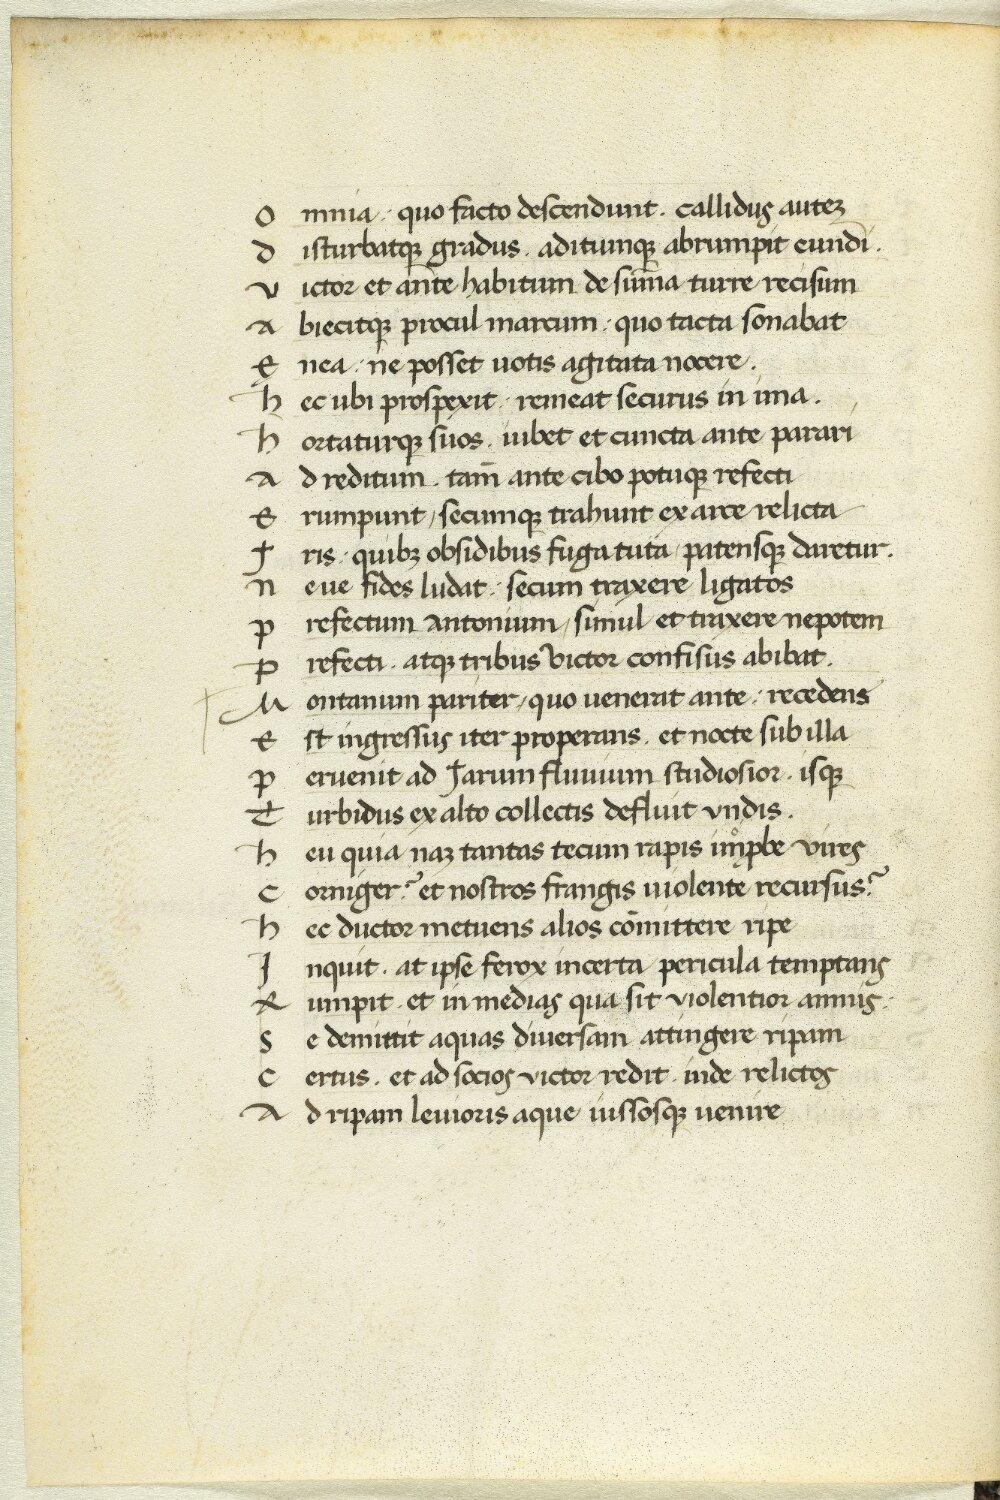 O mnia · quo facto descendunt . callidus auteꝫ
D isturbatqꝫ gradus . aditumqꝫ abrumpit eundi .
V ictor et an̄te habitum de sum̄a turre recisum
A biecitqꝫ procul marcum · quo tacta sonabat
E nea · ne posset uotis agitata nocere .
H ec ubi prospexit · remeat securus in ima .
H ortaturqꝫ suos . iubet et cuncta ante parari
A d reditum . tam̄ ante cibo potuqꝫ refecti
E rumpunt / secumqꝫ trahunt ex arce relicta
I ris · quibꝫ obsidibus fuga tuta / patensqꝫ daretur .
N eue fides ludat · secum traxere ligatos
P refectum antonium / simul et traxere nepotem
P refecti . atqꝫ tribus victor confisus abibat .
M ontanum pariter / quo uenerat ante · recedens
E st ingressus iter properans . et nocte sub illa
P eruenit ad Iarum fluuium studiosior . isqꝫ
T urbidus ex alto collectis defluit vndis .
H eu quia naꝫ tantas tecum rapis im̊ꝓbe vires
C orniger ? et nostros frangis uiolente recursus ?
H ec ductor metuens alios com̄ittere ripe
I nquit . at ipse ferox incerta pericula temptans
R umpit et in medias qua sit violentior amnis ·
S e demittit aquas diuersam attingere ripam
C ertus . et ad socios victor redit inde relictos
A d ripam leuioris aque iussosqꝫ uenire